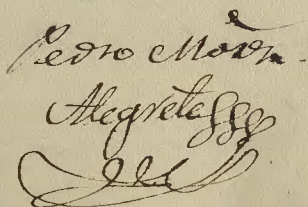 Pedro Mōrn.
Alegrete